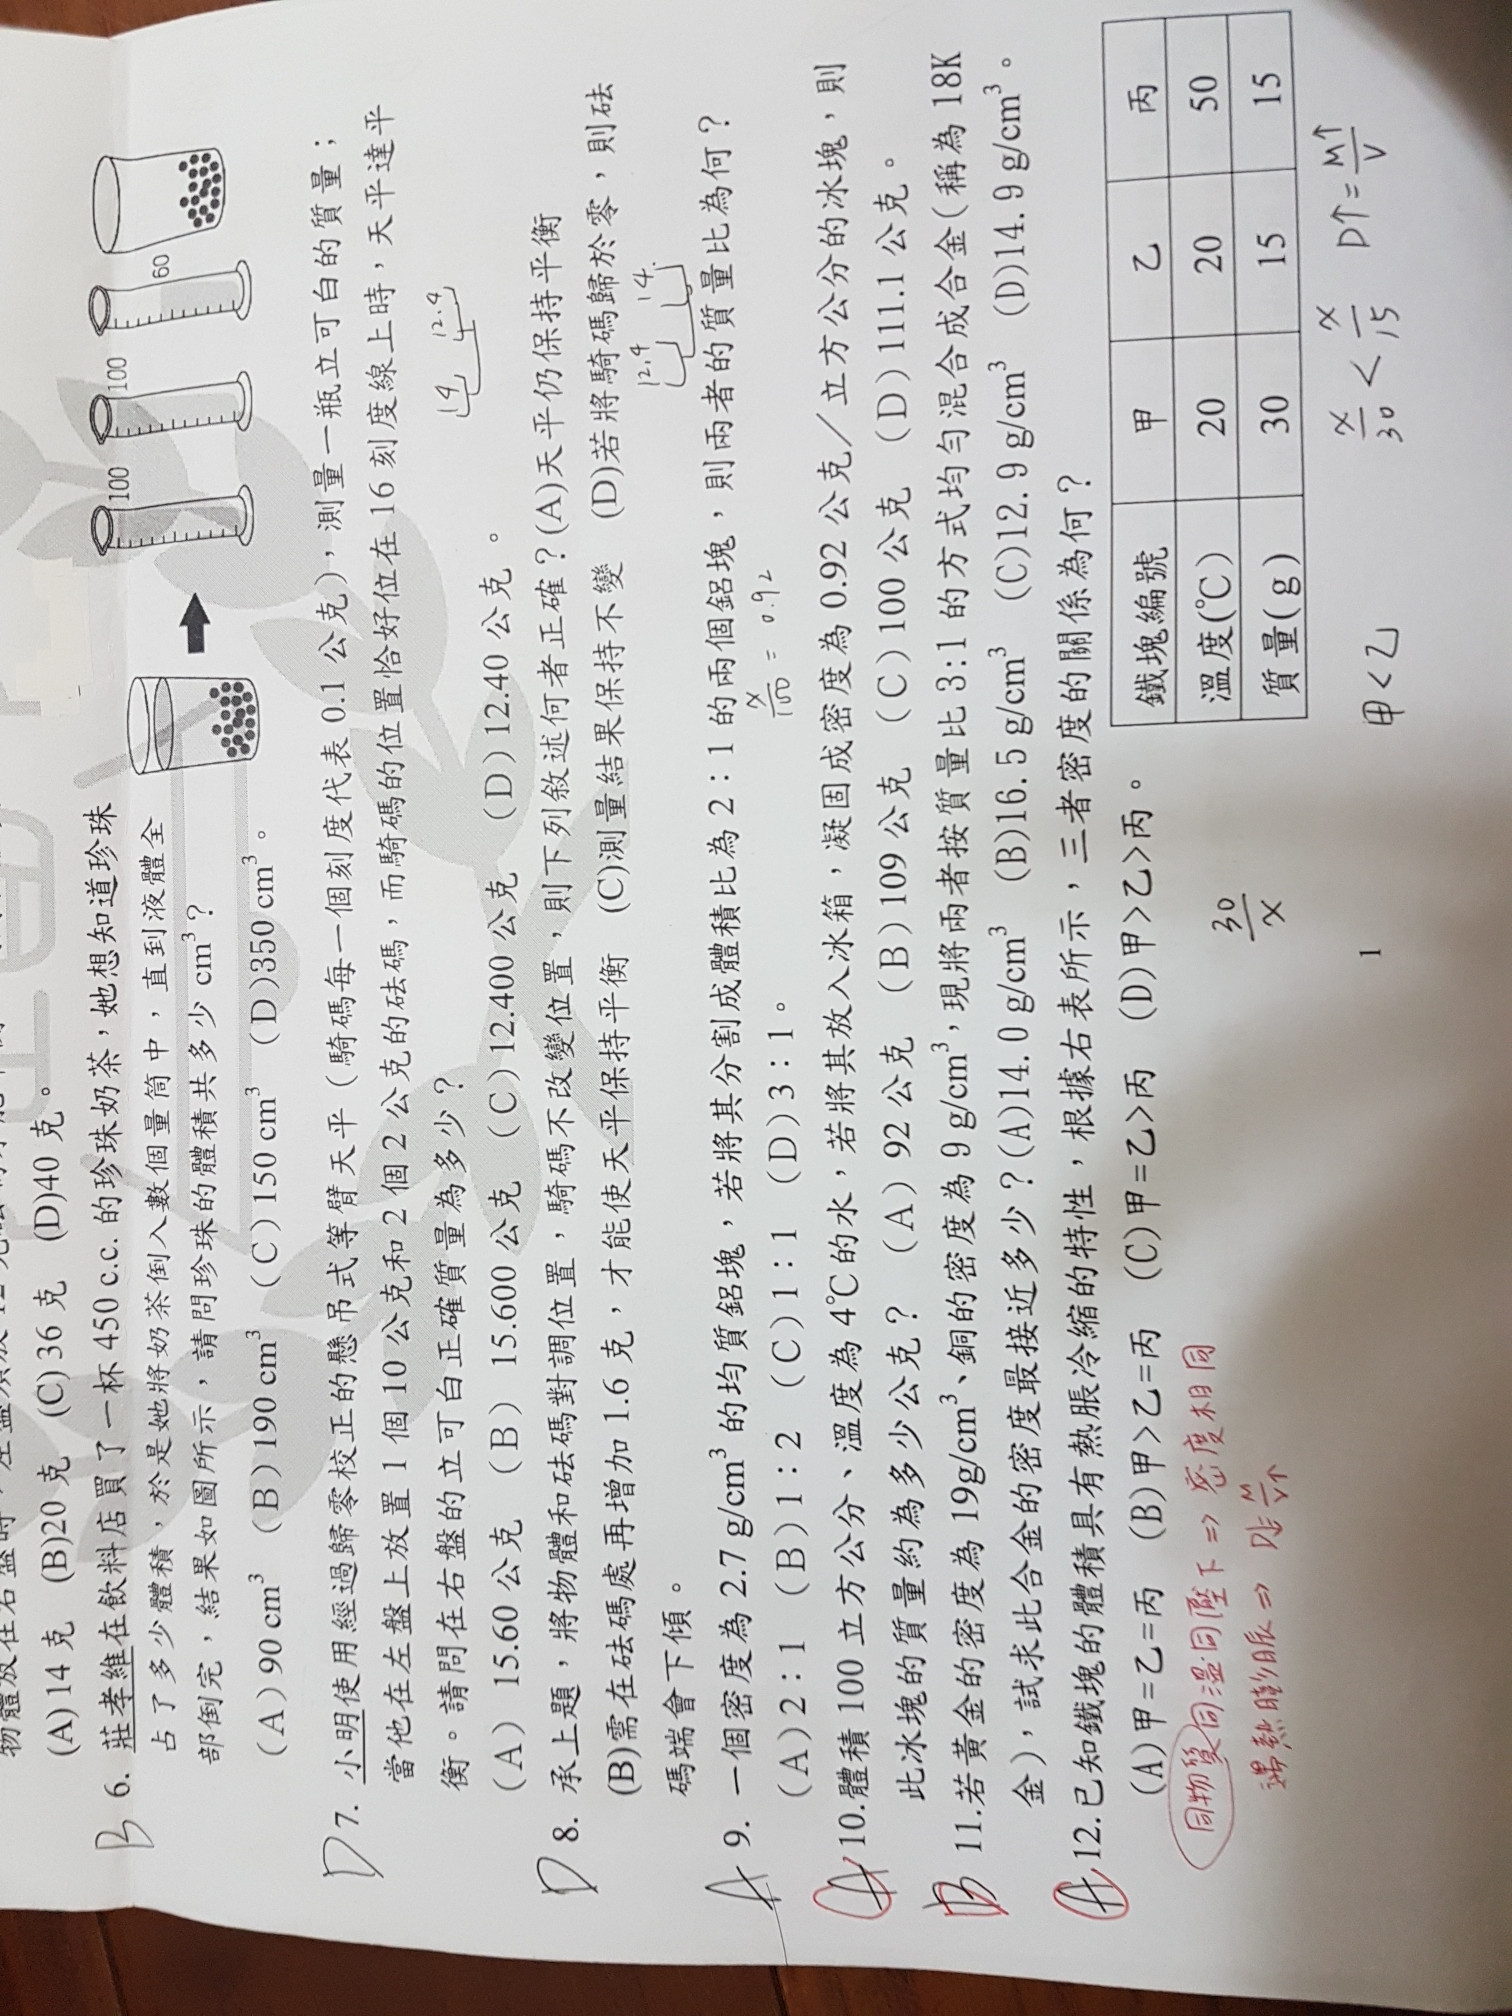 (A)14 克 (B)20 克 (C)36 克 (D)40 克。
B 6. 莊孝維在飲料店買了一杯 450 c.c. 的珍珠奶茶，她想知道珍珠
占了多少體積，於是她將奶茶倒入數個量筒中，直到液體全
部倒完，結果如圖所示，請問珍珠的體積共多少 cm³？
(A)90 cm³ (B)190 cm³ (C)150 cm³ (D)350 cm³。
100 100 60
D 7. 小明使用經過歸零校正的懸吊式等臂天平（騎碼每一個刻度代表 0.1 公克），測量一瓶立可白的質量；
當他在左盤上放置 1 個 10 公克和 2 個 2 公克的砝碼，而騎碼的位置恰好位在 16 刻度線上時，天平達平
衡。請問在右盤的立可白正確質量為多少？
14 12.4
(A) 15.60 公克 (B) 15.600 公克 (C)12.400 公克 (D)12.40 公克。
D 8. 承上題，將物體和砝碼對調位置，騎碼不改變位置，則下列敘述何者正確？(A)天平仍保持平衡
(B)需在砝碼處再增加 1.6 克，才能使天平保持平衡 (C)測量結果保持不變 (D)若將騎碼歸於零，則砝
碼端會下傾。
12.4 14
A 9. 一個密度為 2.7 g/cm³ 的均質鋁塊，若將其分割成體積比為 2：1 的兩個鋁塊，則兩者的質量比為何？
(A)2：1 (B)1：2 (C)1：1 (D)3：1。
x/100 = 0.92
A 10.體積 100 立方公分、溫度為 4℃的水，若將其放入冰箱，凝固成密度為 0.92 公克／立方公分的冰塊，則
此冰塊的質量約為多少公克？ (A) 92 公克 (B)109 公克 (C)100 公克 (D)111.1 公克。
B 11.若黃金的密度為 19g/cm³、銅的密度為 9 g/cm³，現將兩者按質量比 3:1 的方式均勻混合成合金(稱為 18K
金)，試求此合金的密度最接近多少？(A)14.0 g/cm³ (B)16.5 g/cm³ (C)12.9 g/cm³ (D)14.9 g/cm³。
A 12.已知鐵塊的體積具有熱脹冷縮的特性，根據右表所示，三者密度的關係為何？
(A)甲＝乙＝丙 (B)甲＞乙＝丙 (C)甲＝乙＞丙 (D)甲＞乙＞丙。
鐵塊編號 甲 乙 丙
溫度(℃) 20 20 50
質量(g) 30 15 15
同物質同溫同壓下 ⇒ 密度相同
遇熱膨脹 ⇒ D↓= M/V↑
30/x
甲＜乙
x/30 < x/15 D↑= M↑/V
1